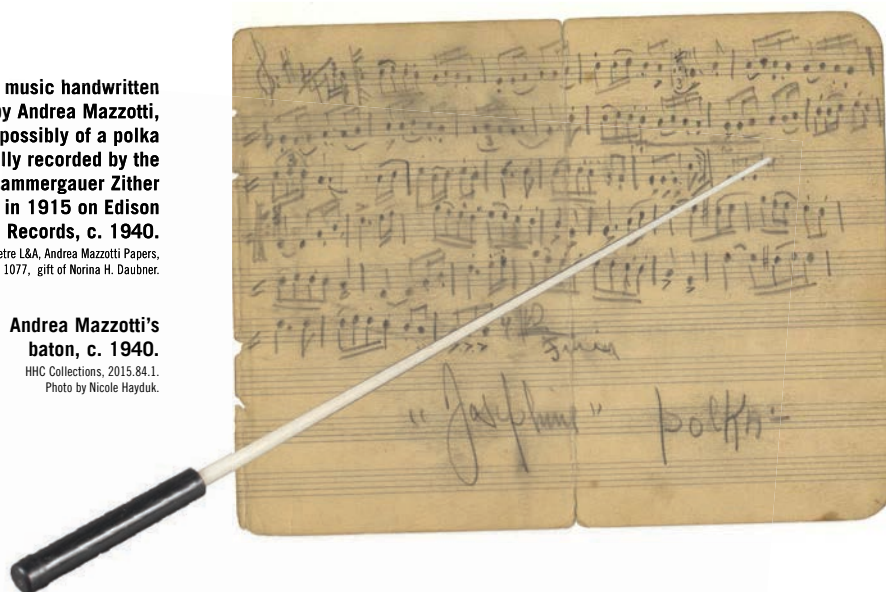 music handwritten
by Andrea Mazzotti,
possibly of a polka
lly recorded by the
ammergauer Zither
in 1915 on Edison
Records, c. 1940.
etre L&A, Andrea Mazzotti Papers,
1077, gift of Norina H. Daubner.
Andrea Mazzotti’s
baton, c. 1940.
HHC Collections, 2015.84.1.
Photo by Nicole Hayduk.
3
3
3
"Josephine" polka